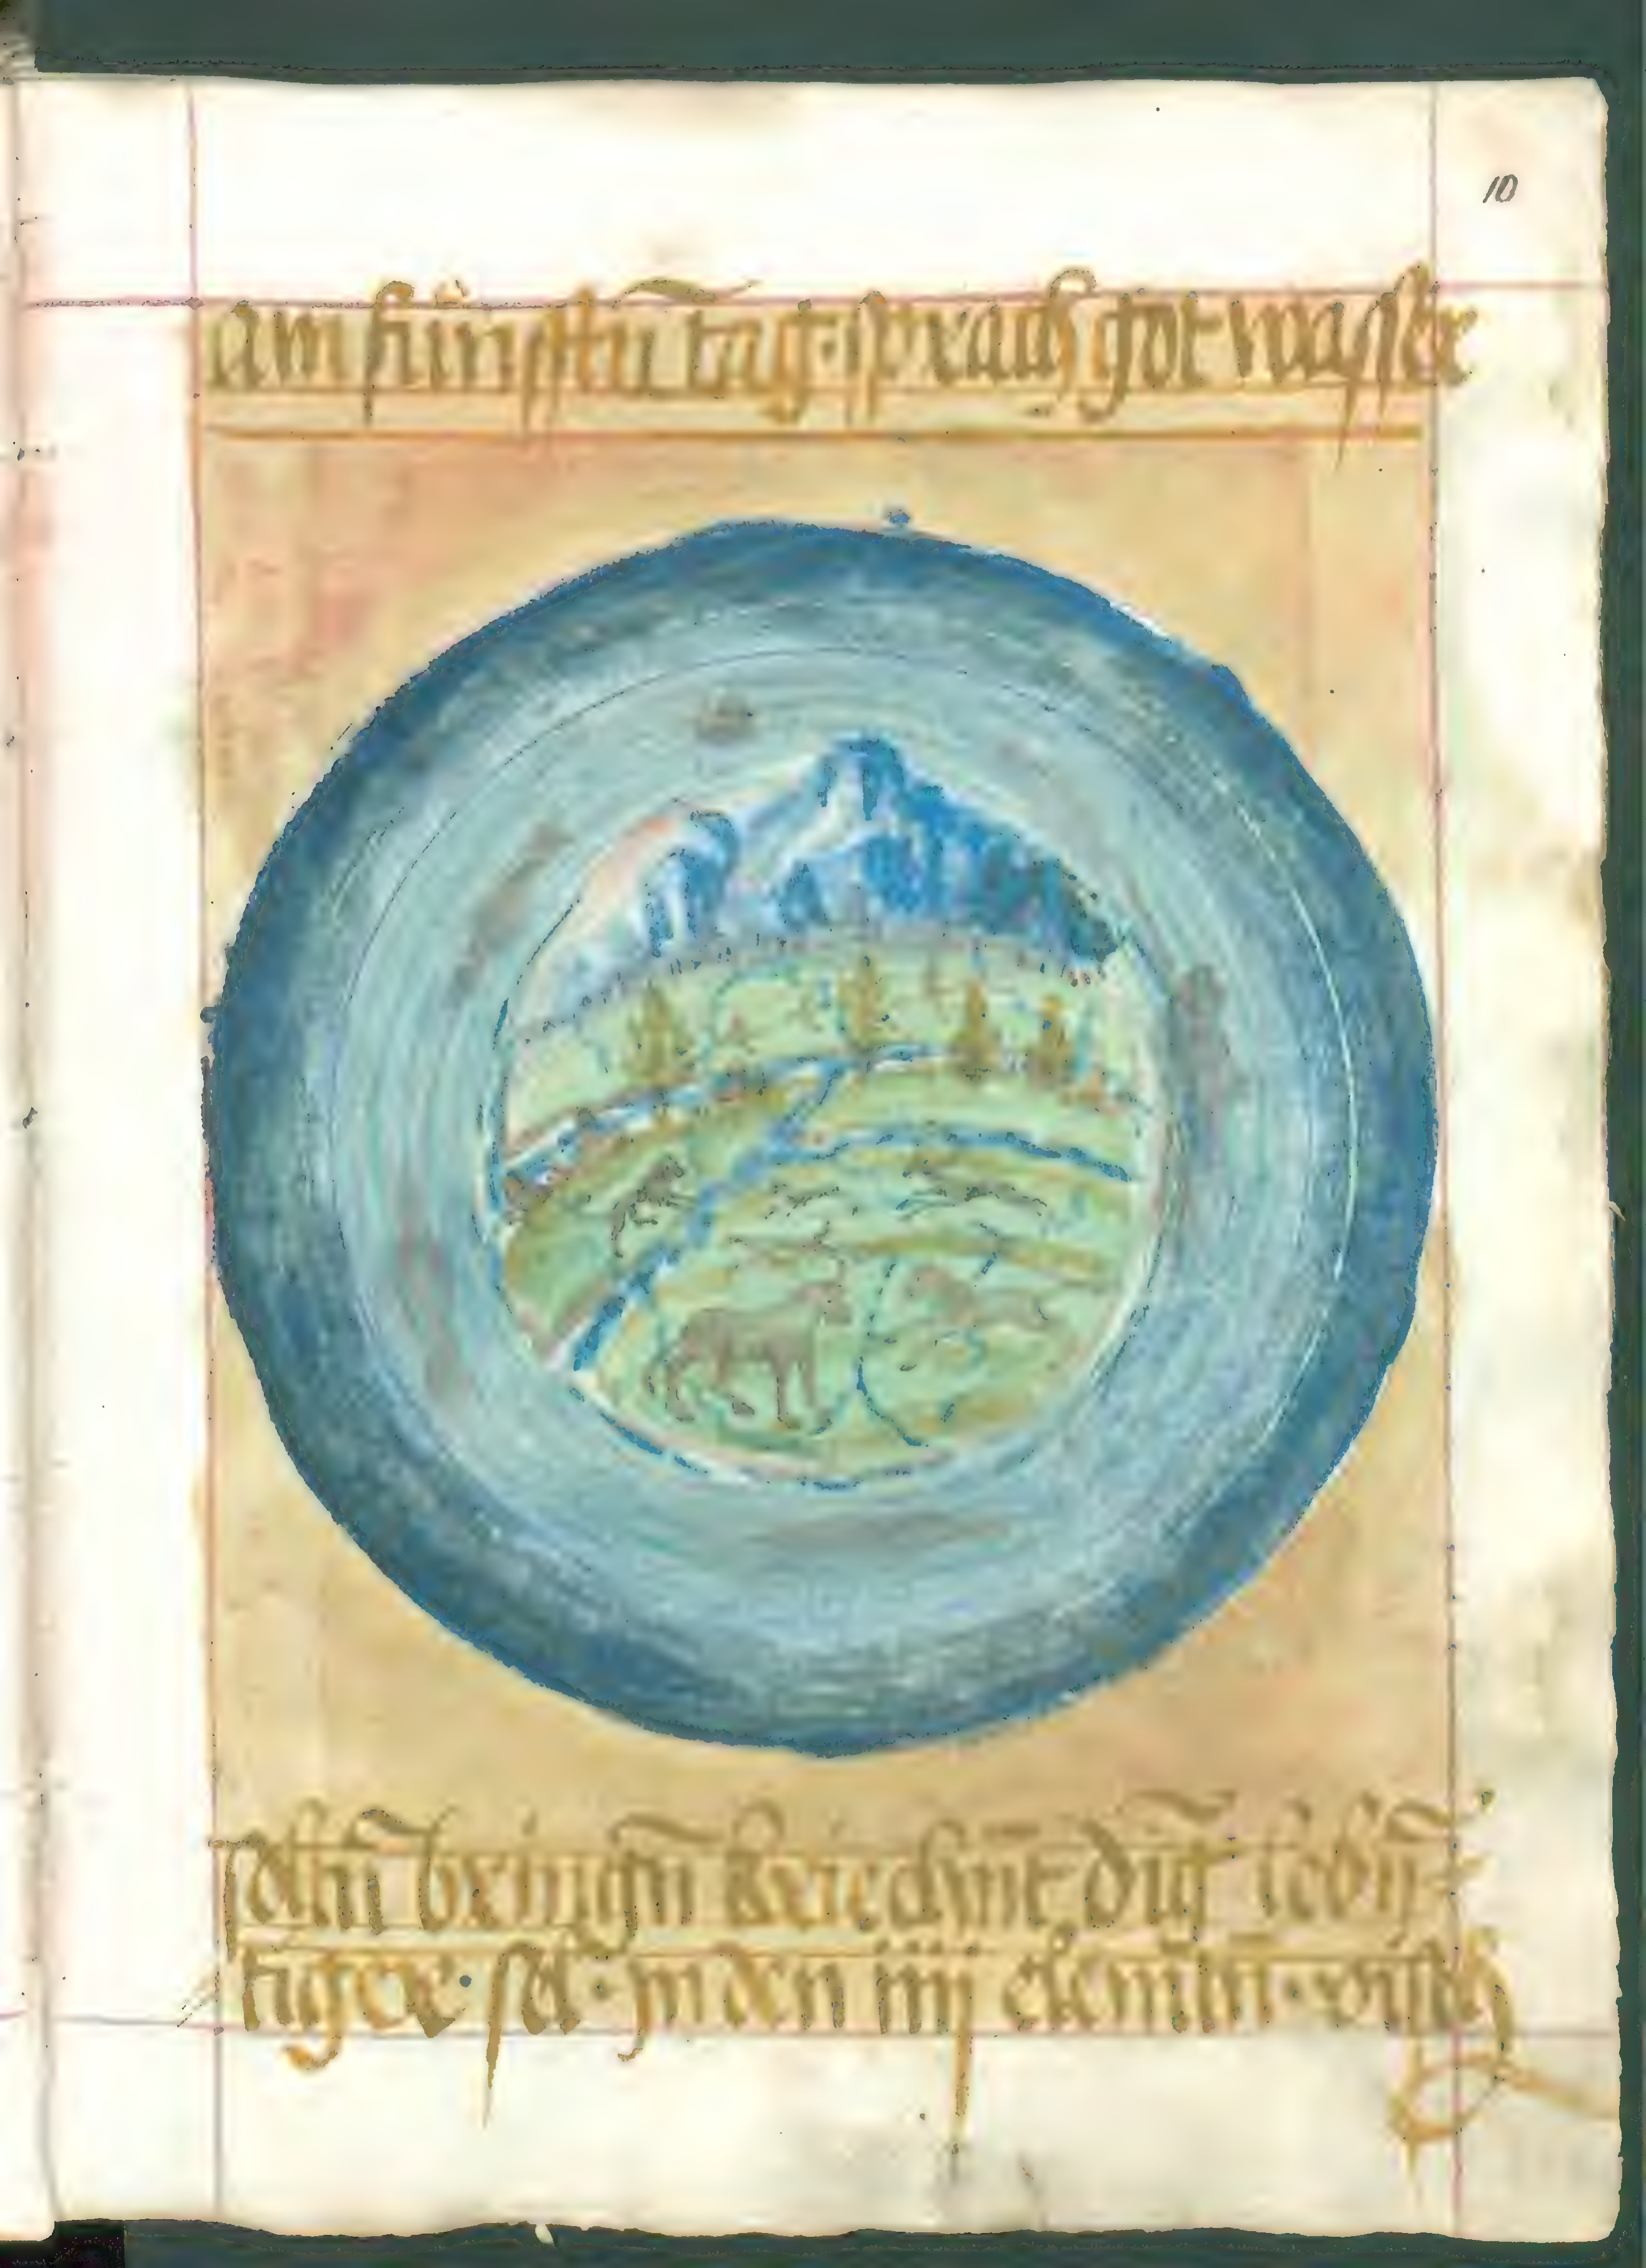 10
Am fünfftn̄ tag · sprach got wasser
solln̄ bringn̄ kriechnt ding lebn̄
tiger · sel · jn den iiij elemntn̄ ·